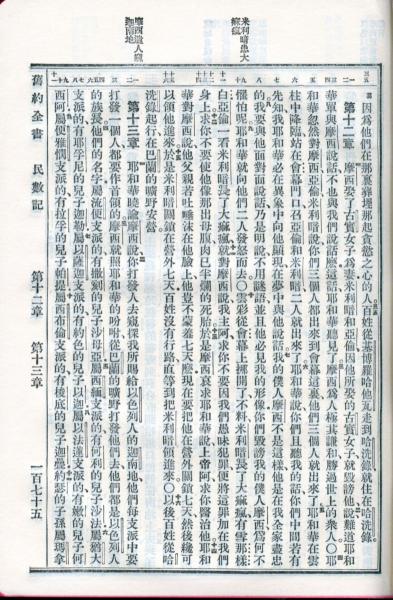 米利暗患大
痲瘋
摩西遣人窺
探迦南地
因爲他們在那裏葬埋那起貪慾之心的人百姓從基博羅哈他瓦走到哈洗錄就住在哈洗錄
第十二章 摩西娶了古實女子爲妻米利暗和亞倫因他所娶的古實女子就毀謗他說難道耶和
華單與摩西說話不也與我們說話麼這話耶和華聽見了摩西爲人極其謙和勝過世上的衆人〇耶
和華忽然對摩西亞倫米利暗說你們三個人都出來到會幕這裏他們三個人就出來了耶和華在雲
柱中降臨站在會幕門口召亞倫和米利暗二人就出來了耶和華說你們且聽我的話你們中間若有
先知我耶和華必在異象中向他顯現在夢中與他說話我的僕人摩西不是這樣他是在我全家盡忠
的我要與他面對面說話乃是明說不用謎語並且他必見我的形像你們毀謗我的僕人摩西爲何不
懼怕呢耶和華就向他們二人發怒而去〇雲彩從會幕上挪開了不料米利暗長了大痲瘋有雪那樣
白亞倫一看米利暗長了大痲瘋就對摩西說我主阿求你不要因我們愚昧犯罪便將這罪加在我們
身上求你不要使他像那出母腹肉已半爛的死胎於是摩西哀求耶和華說上帝阿求你醫治他耶和
華對摩西說他父親若吐唾沫在他臉上他豈不蒙羞七天麼現在要把他在營外關鎖七天然後纔可
以領他進來於是米利暗關鎖在營外七天百姓沒有行路直等到把米利暗領進來〇以後百姓從哈
洗錄起行在巴蘭的曠野安營
第十三章 耶和華曉諭摩西說你打發人去窺探我所賜給以色列人的迦南地他們每支派中要
打發一個人都要作首領的摩西就照耶和華的吩咐從巴蘭的曠野打發他們去他們都是以色列人
的族長他們的名字屬流便支派的有撒刻的兒子沙母亞屬西緬支派的有何利的兒子沙法屬猶大
支派的有耶孚尼的兒子迦勒屬以薩迦支派的有約色的兒子以迦屬以法蓮支派的有嫩的兒子何
西阿屬便雅憫支派的有拉孚的兒子帕提屬西布倫支派的有梭底的兒子迦疊約瑟的子孫屬瑪拿
舊約全書 民數記 第十二章 第十三章 一百七十五